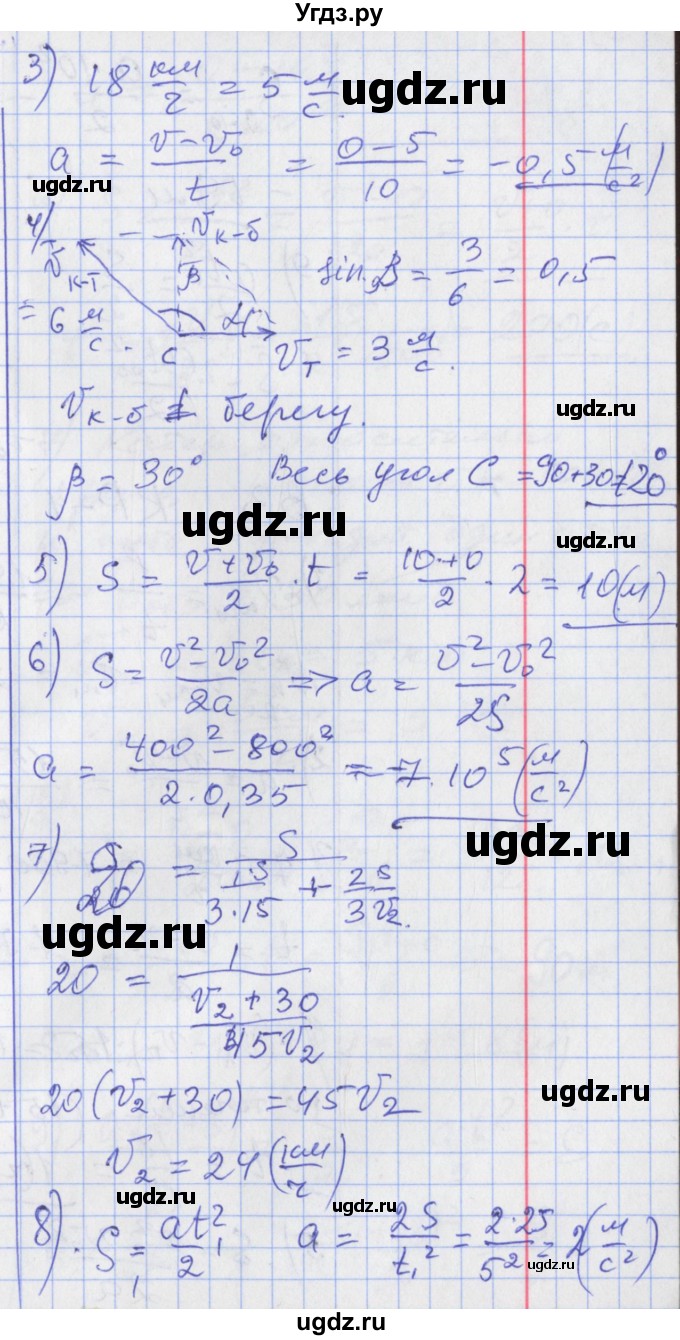 Угдз.ру
3) 18 км/ч = 5 м/с.
ugdz.ru
a = (v - v₀)/t = (0 - 5)/10 = -0,5 (м/с²)
ugdz.ru
4) v к-б
v к-т = 6 м/с. β α sin β = 3/6 = 0,5
C v т = 3 м/с.
ugdz.ru
v к-б ⊥ берегу.
ugdz.ru
β = 30° Весь угол C = 90+30=120°
ugdz.ru
ugdz.ru
5) S = (v + v₀)/2 · t = (10 + 0)/2 · 2 = 10 (м)
ugdz.ru
6) S = (v² - v₀²)/2a => a = (v² - v₀²)/2S
a = (400² - 800²)/(2 · 0,35) = -7 · 10⁵ (м/с²)
ugdz.ru
ugdz.ru
7) 20 = S/(1S/(3·15) + 2S/(3v₂)).
ugdz.ru
20 = 1/((v₂ + 30)/(45v₂))
ugdz.ru
20 (v₂ + 30) = 45 v₂
ugdz.ru
v₂ = 24 (км/ч)
ugdz.ru
ugdz.ru
8). S₁ = at₁²/2 a = 2S/t₁² = 2·25/5² = 2 (м/с²)
ugdz.ru
ugdz.ru
ugdz.ru